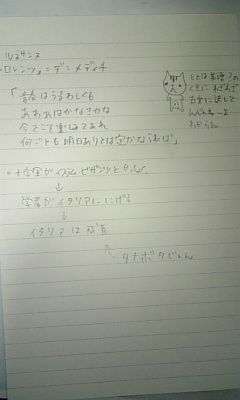 ルネサンス
ロレンツォ=デ=メディチ
「青春はうるわしくも
あああはかなきかな
今でこそ楽しみてあれ
何ごとも明日ありとは定かならねば」
もとは英語?の
くせに わざわざ
古文に訳して
んじゃねーよ
わからん
・十字軍が イスラム ビザンツと
↓
学者がイタリアににげる
↓
イタリアは成長
タナボタじゃん